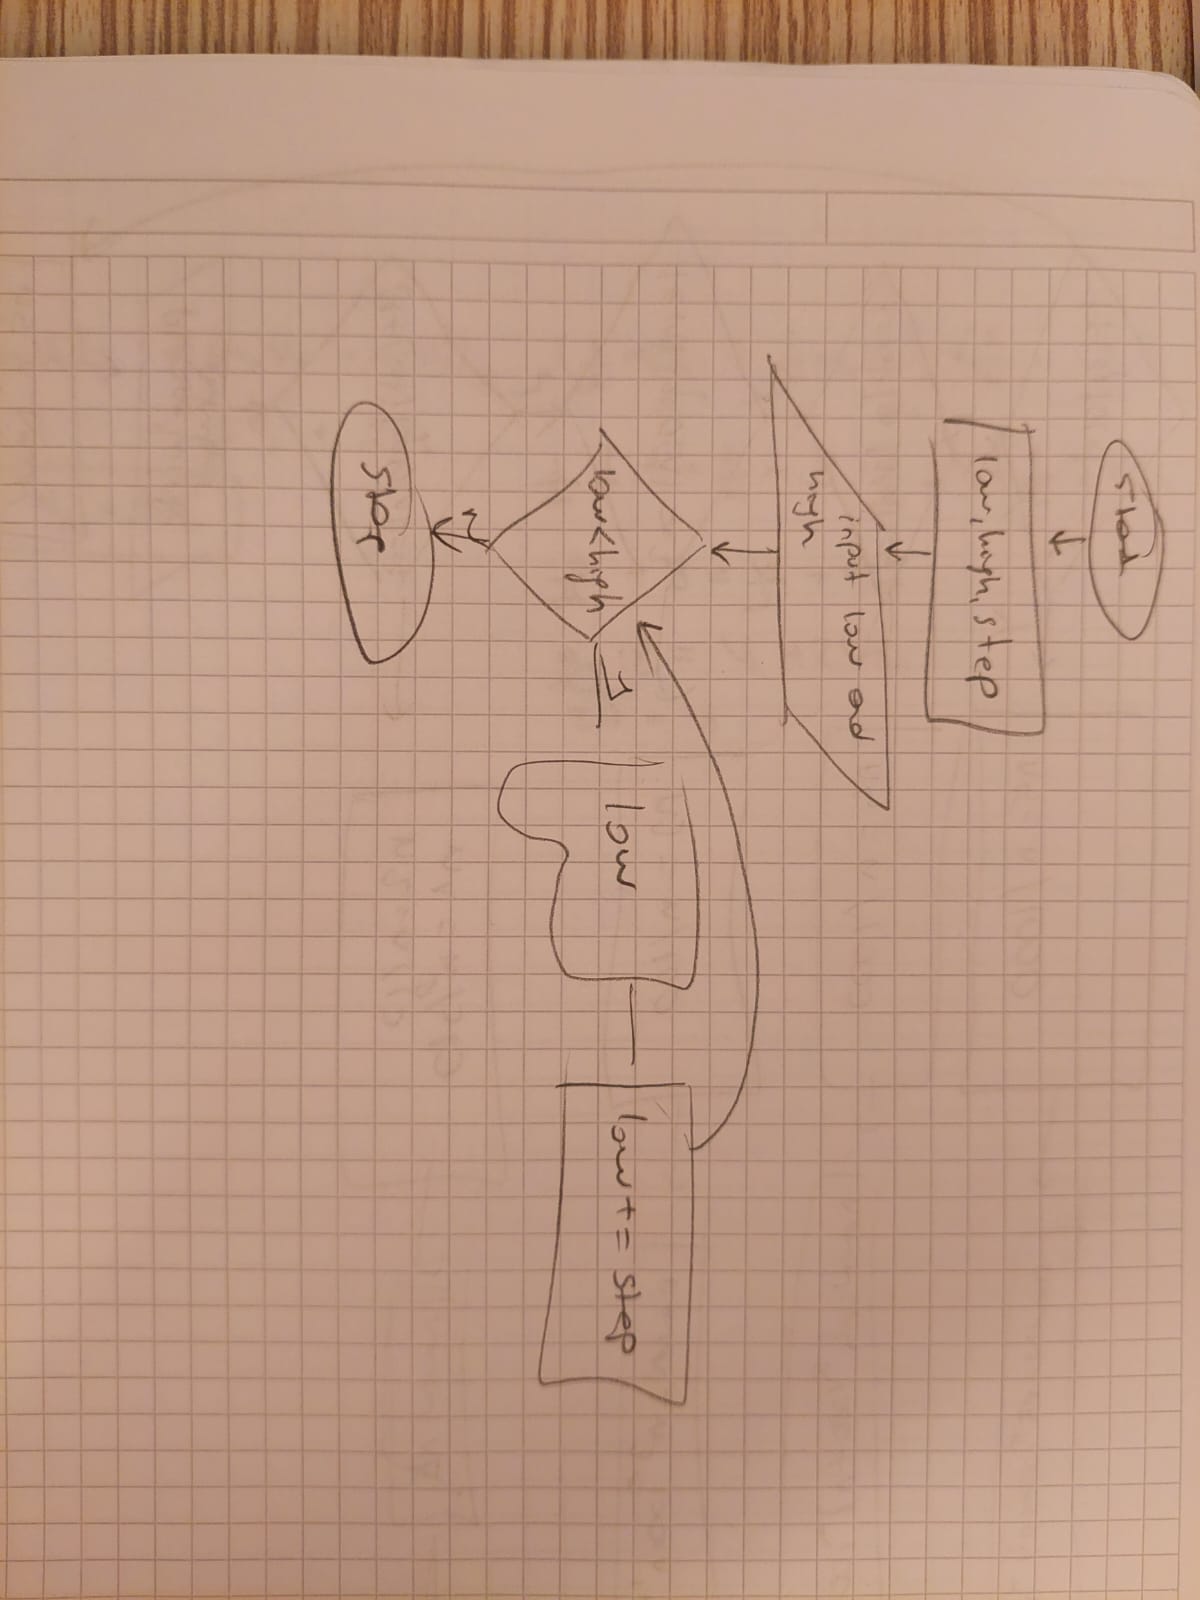 start
low, high, step
input low and
high
low<high
low
low += step
stop